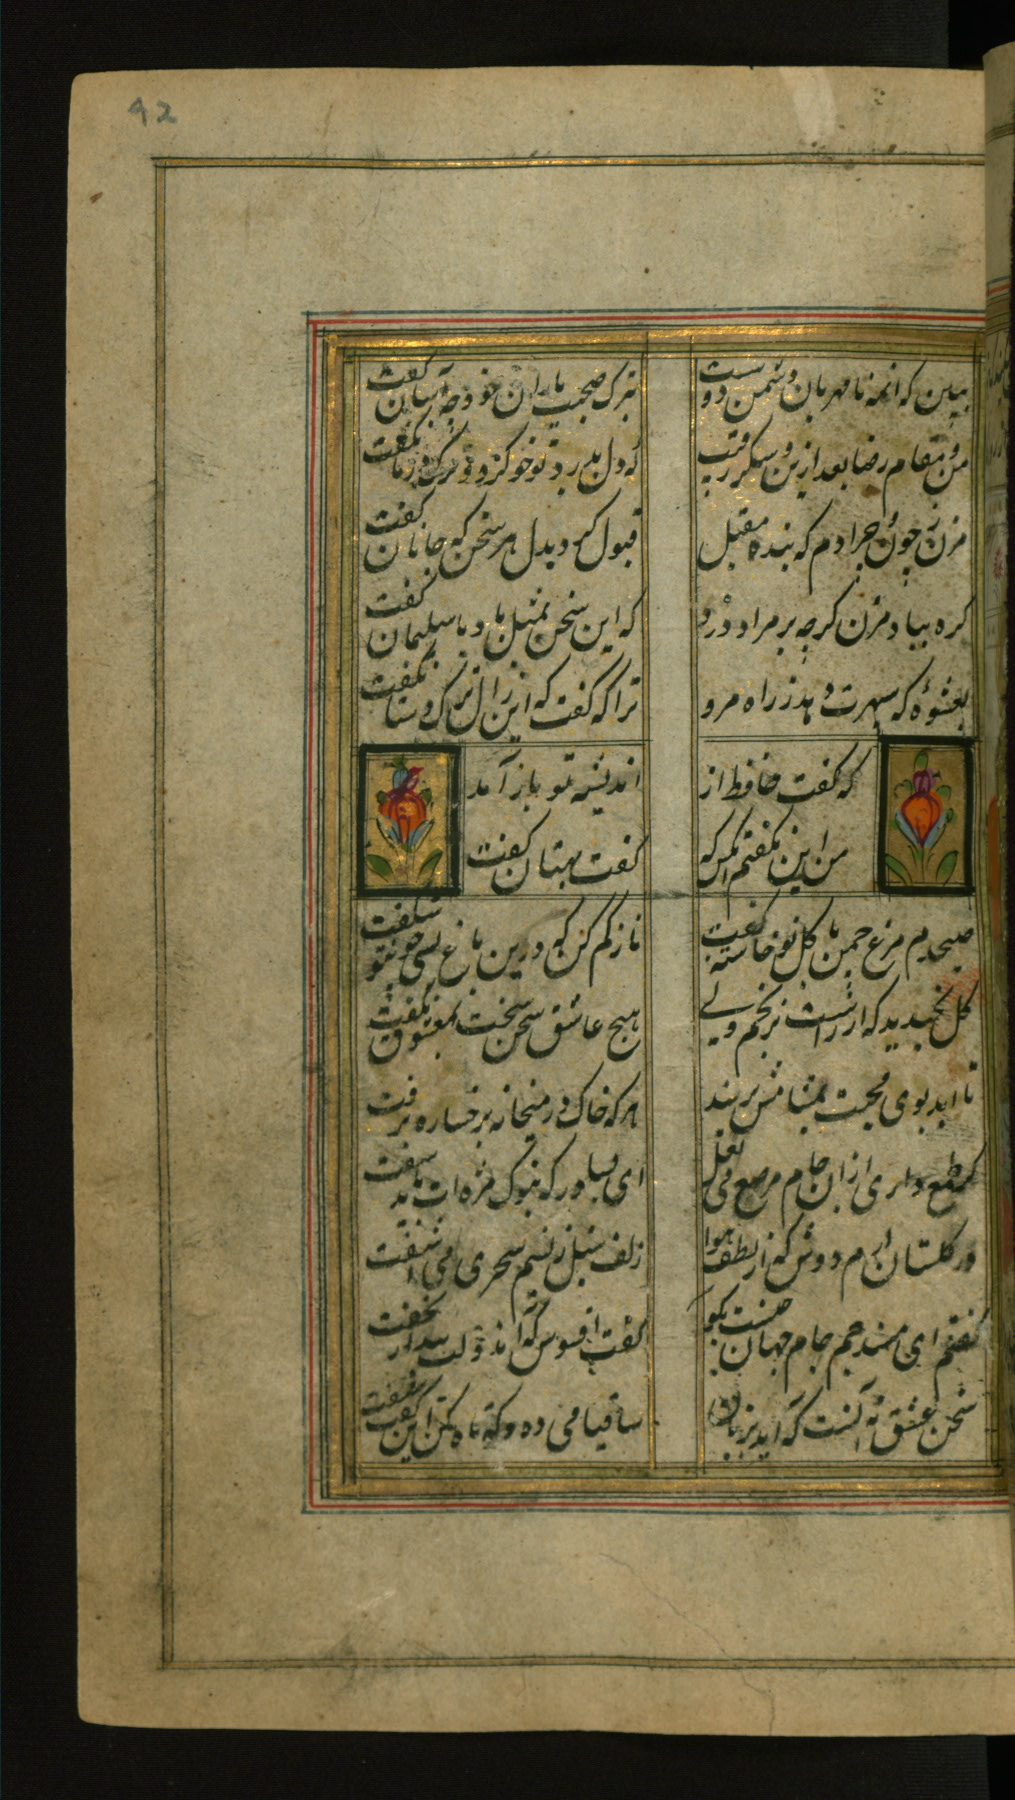 92
ببین که انمه نامهربان دشمن دوست
بترک صحبت یاران خود چه آسان گفت
من و مقام رضا بعد ازین و شکر رقیب
که دل بدرد تو خو کرد و ترک درمان گفت
مزن ز چون و چرا دم که بنده مقبل
قبول کرد بدل هر سخن که جانان گفت
گره بباد مزن گرچه بر مراد رود
که این سخن بمثل باد با سلیمان گفت
بعشوه که سپهرت دهد ز راه مرو
ترا که گفت که این زال ترک دستان گفت
که گفت حافظ از اندیشه تو باز آمد
من این نگفتم آنکس که گفت بهتان گفت
صبحدم مرغ چمن با گل نو خاسته گفت
ناز کم کن که درین باغ بسی چون تو شکفت
گل بخندید که از راست نرنجم ولی
هیچ عاشق سخن سخت بمعشوق نگفت
تا ابد بوی محبت بمشامش نرسد
هر که خاک در میخانه برخساره نرفت
گر طمع داری ازان جام مرصع می لعل
ای بسا در که بنوک مژه ات باید سفت
در گلستان ارم دوش که از لطف هوا
زلف سنبل ز نسیم سحری می آشفت
گفتم ای مسند جم جام جهان بینت کو
گفت افسوس که آن دولت بیدار بخفت
سخن عشق نه آنست که آید بزبان
ساقیا می ده و کوتاه کن این گفت شنفت